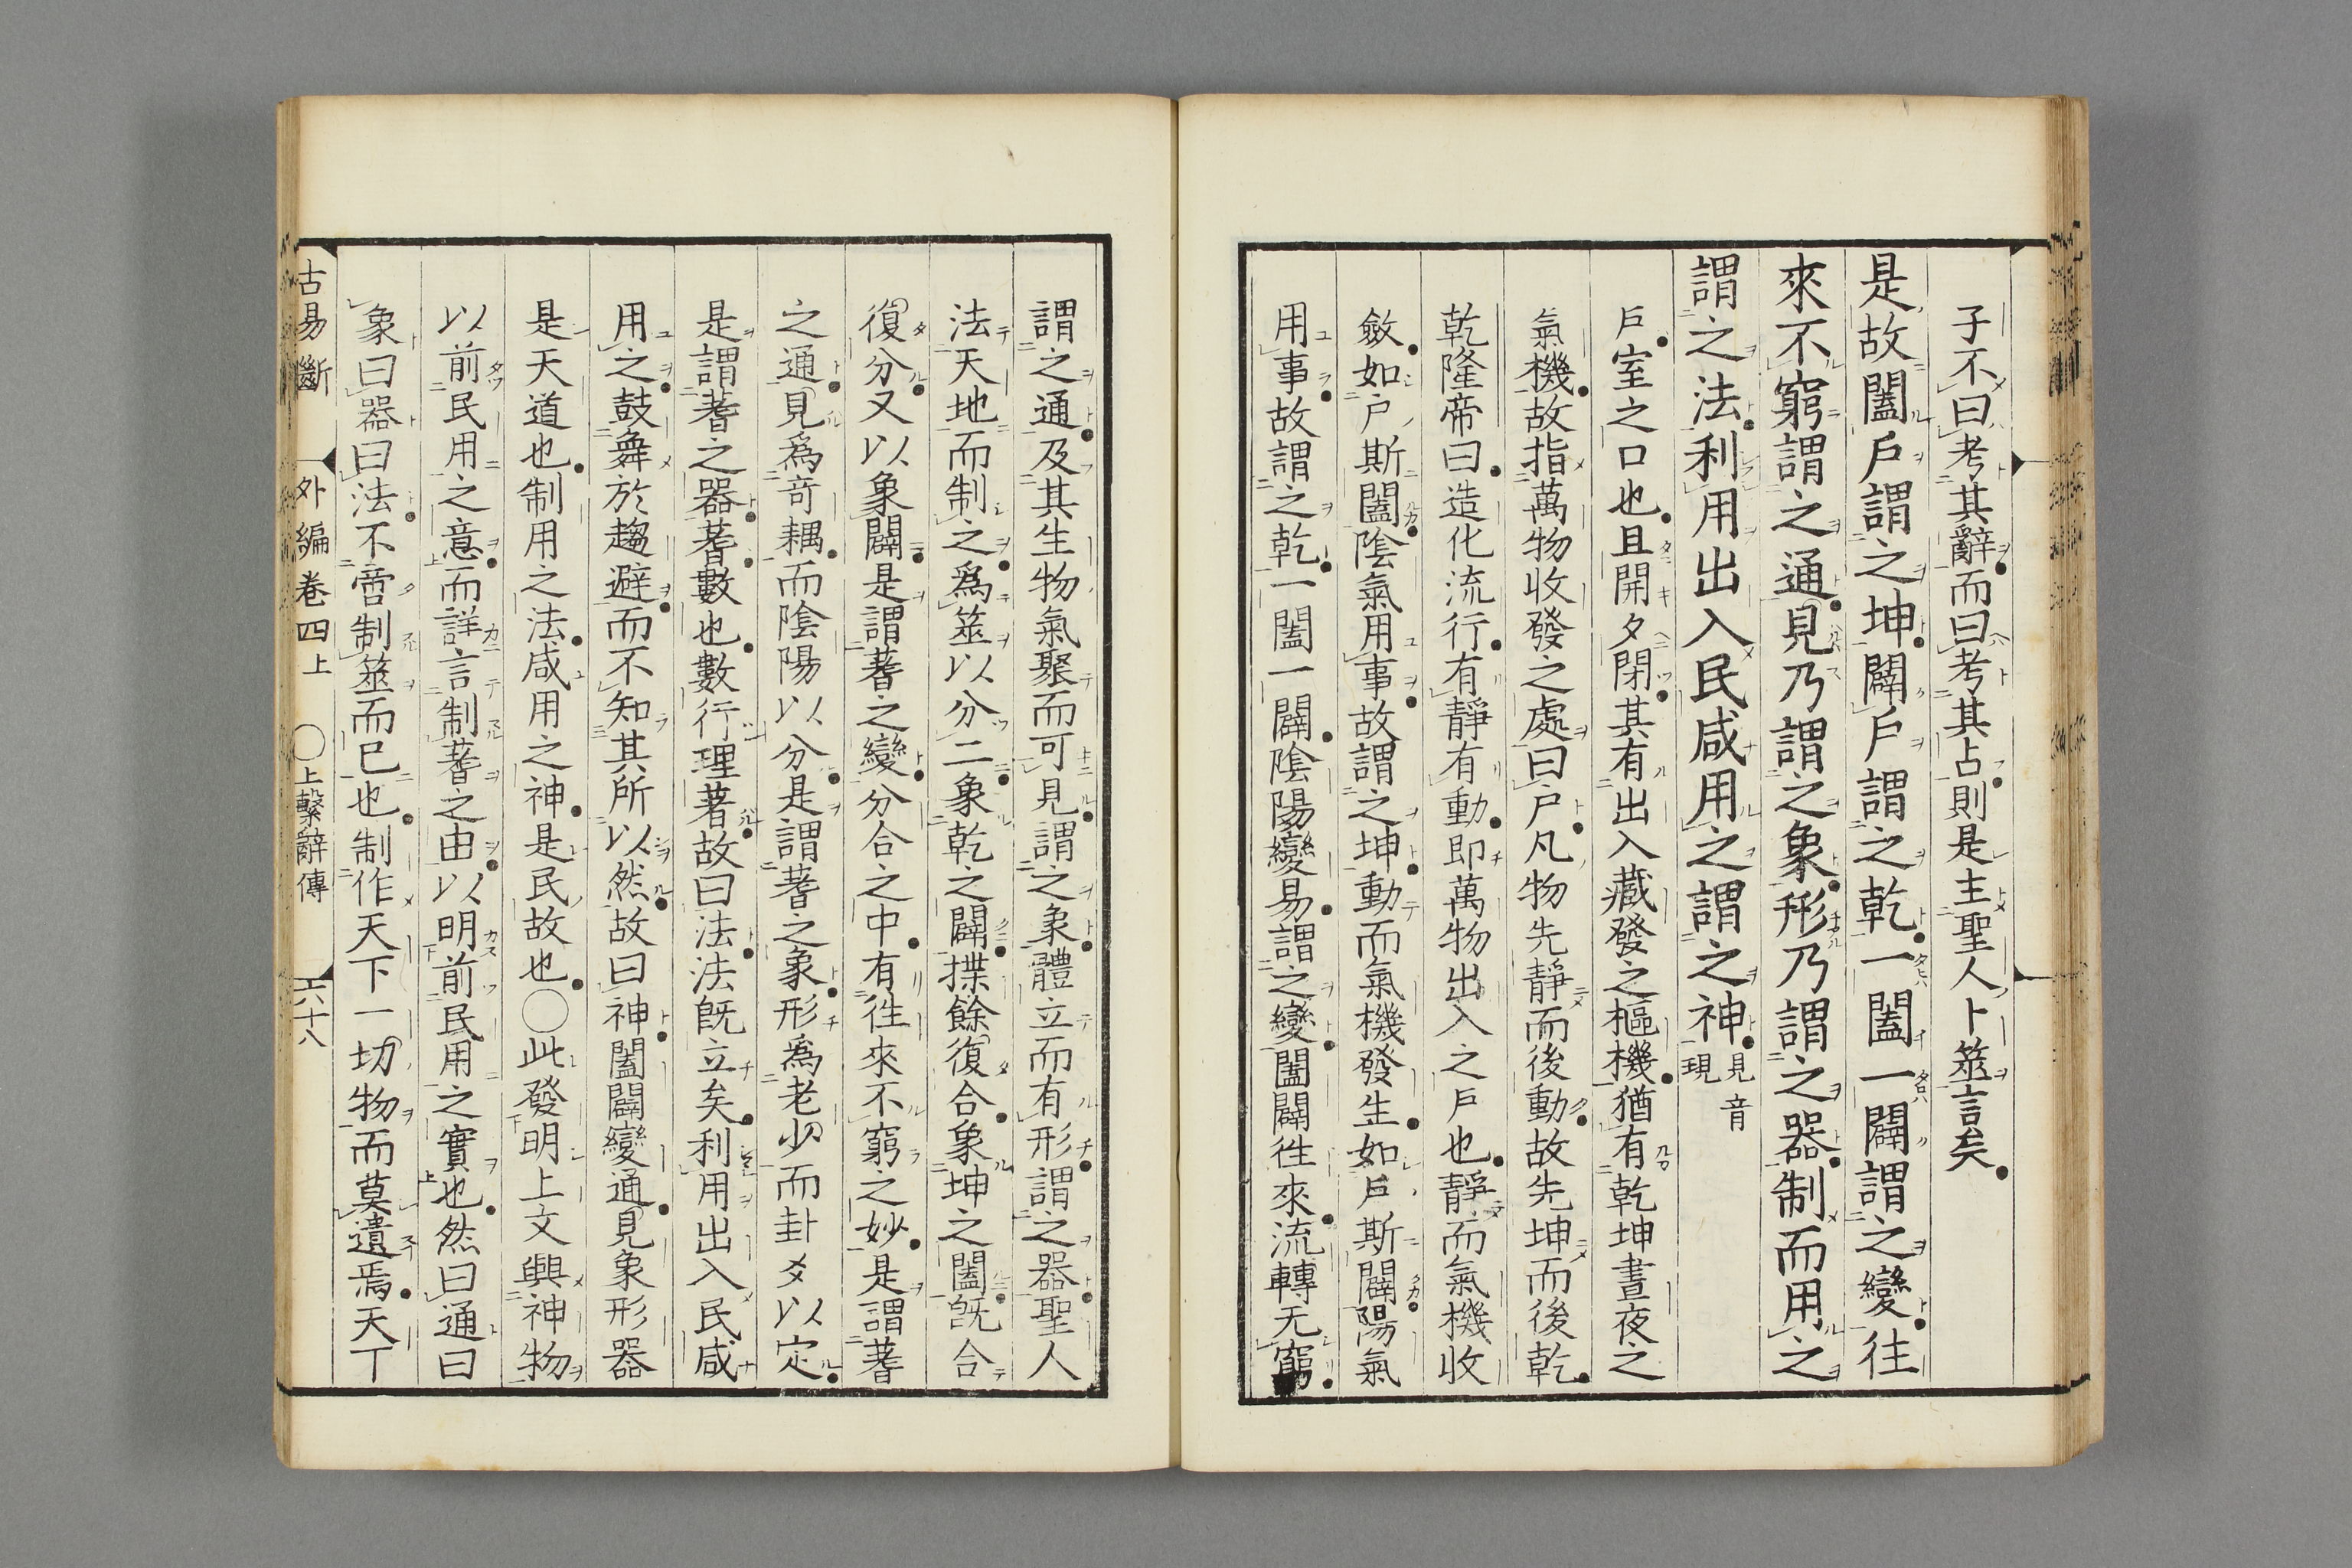 子不曰考其辭而曰考其占則是主聖人卜筮言矣
是故闔戶謂之坤闢戶謂之乾一闔一闢謂之變往
來不窮謂之通見乃謂之象形乃謂之器制而用之
謂之法利用出入民咸用之謂之神見音現
戶室之口也且開夕閉其有出入藏發之樞機猶有乾坤晝夜之
氣機故指萬物收發之處曰戶凡物先靜而後動故先坤而後乾
乾隆帝曰造化流行有靜有動即萬物出入之戶也靜而氣機收
斂如戶斯闔陰氣用事故謂之坤動而氣機發生如戶斯闢陽氣
用事故謂之乾一闔一闢陰陽變易謂之變闔闢往來流轉无窮
謂之通及其生物氣聚而可見謂之象體立而有形謂之器聖人
法天地而制之爲筮以分二象乾之闢揲餘復合象坤之闔既合
復分又以象闢是謂蓍之變分合之中有往來不窮之妙是謂蓍
之通見爲奇耦而陰陽以分是謂蓍之象形爲老少而卦爻以定
是謂蓍之器蓍數也數行理著故曰法法既立矣利用出入民咸
用之鼓舞於趨避而不知其所以然故曰神闔闢變通見象形器
是天道也制用之法咸用之神是民故也○此發明上文興神物
以前民用之意而詳言制蓍之由以明前民用之實也然曰通曰
象曰器曰法不啻制筮而已也制作天下一切物而莫遺焉天丁
古易斷　外編卷四上　○上繫辭傳　六十八